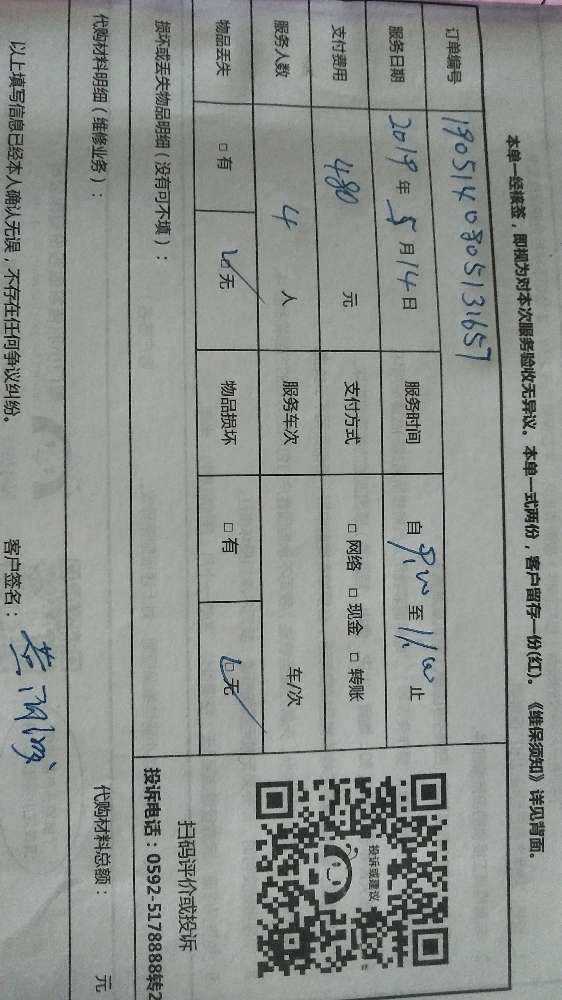 本单一经核签，即视为对本次服务验收无异议。本单一式两份，客户留存一份(红)。《维保须知》详见背面。
订单编号 1905140805131657
服务日期 2019年5月14日 服务时间 自9:00至11:00止
支付费用 480元 支付方式 □网络 □现金 □转账
服务人数 4人 服务车次 车/次
物品丢失 □有 ☑无 物品损坏 □有 ☑无
投诉或建议
扫码评价或投诉
投诉电话：0592-5178888转2
损坏或丢失物品明细（没有可不填）：
代购材料明细（维修业务）： 代购材料总额： 元
以上填写信息已经本人确认无误，不存在任何争议纠纷。 客户签名：